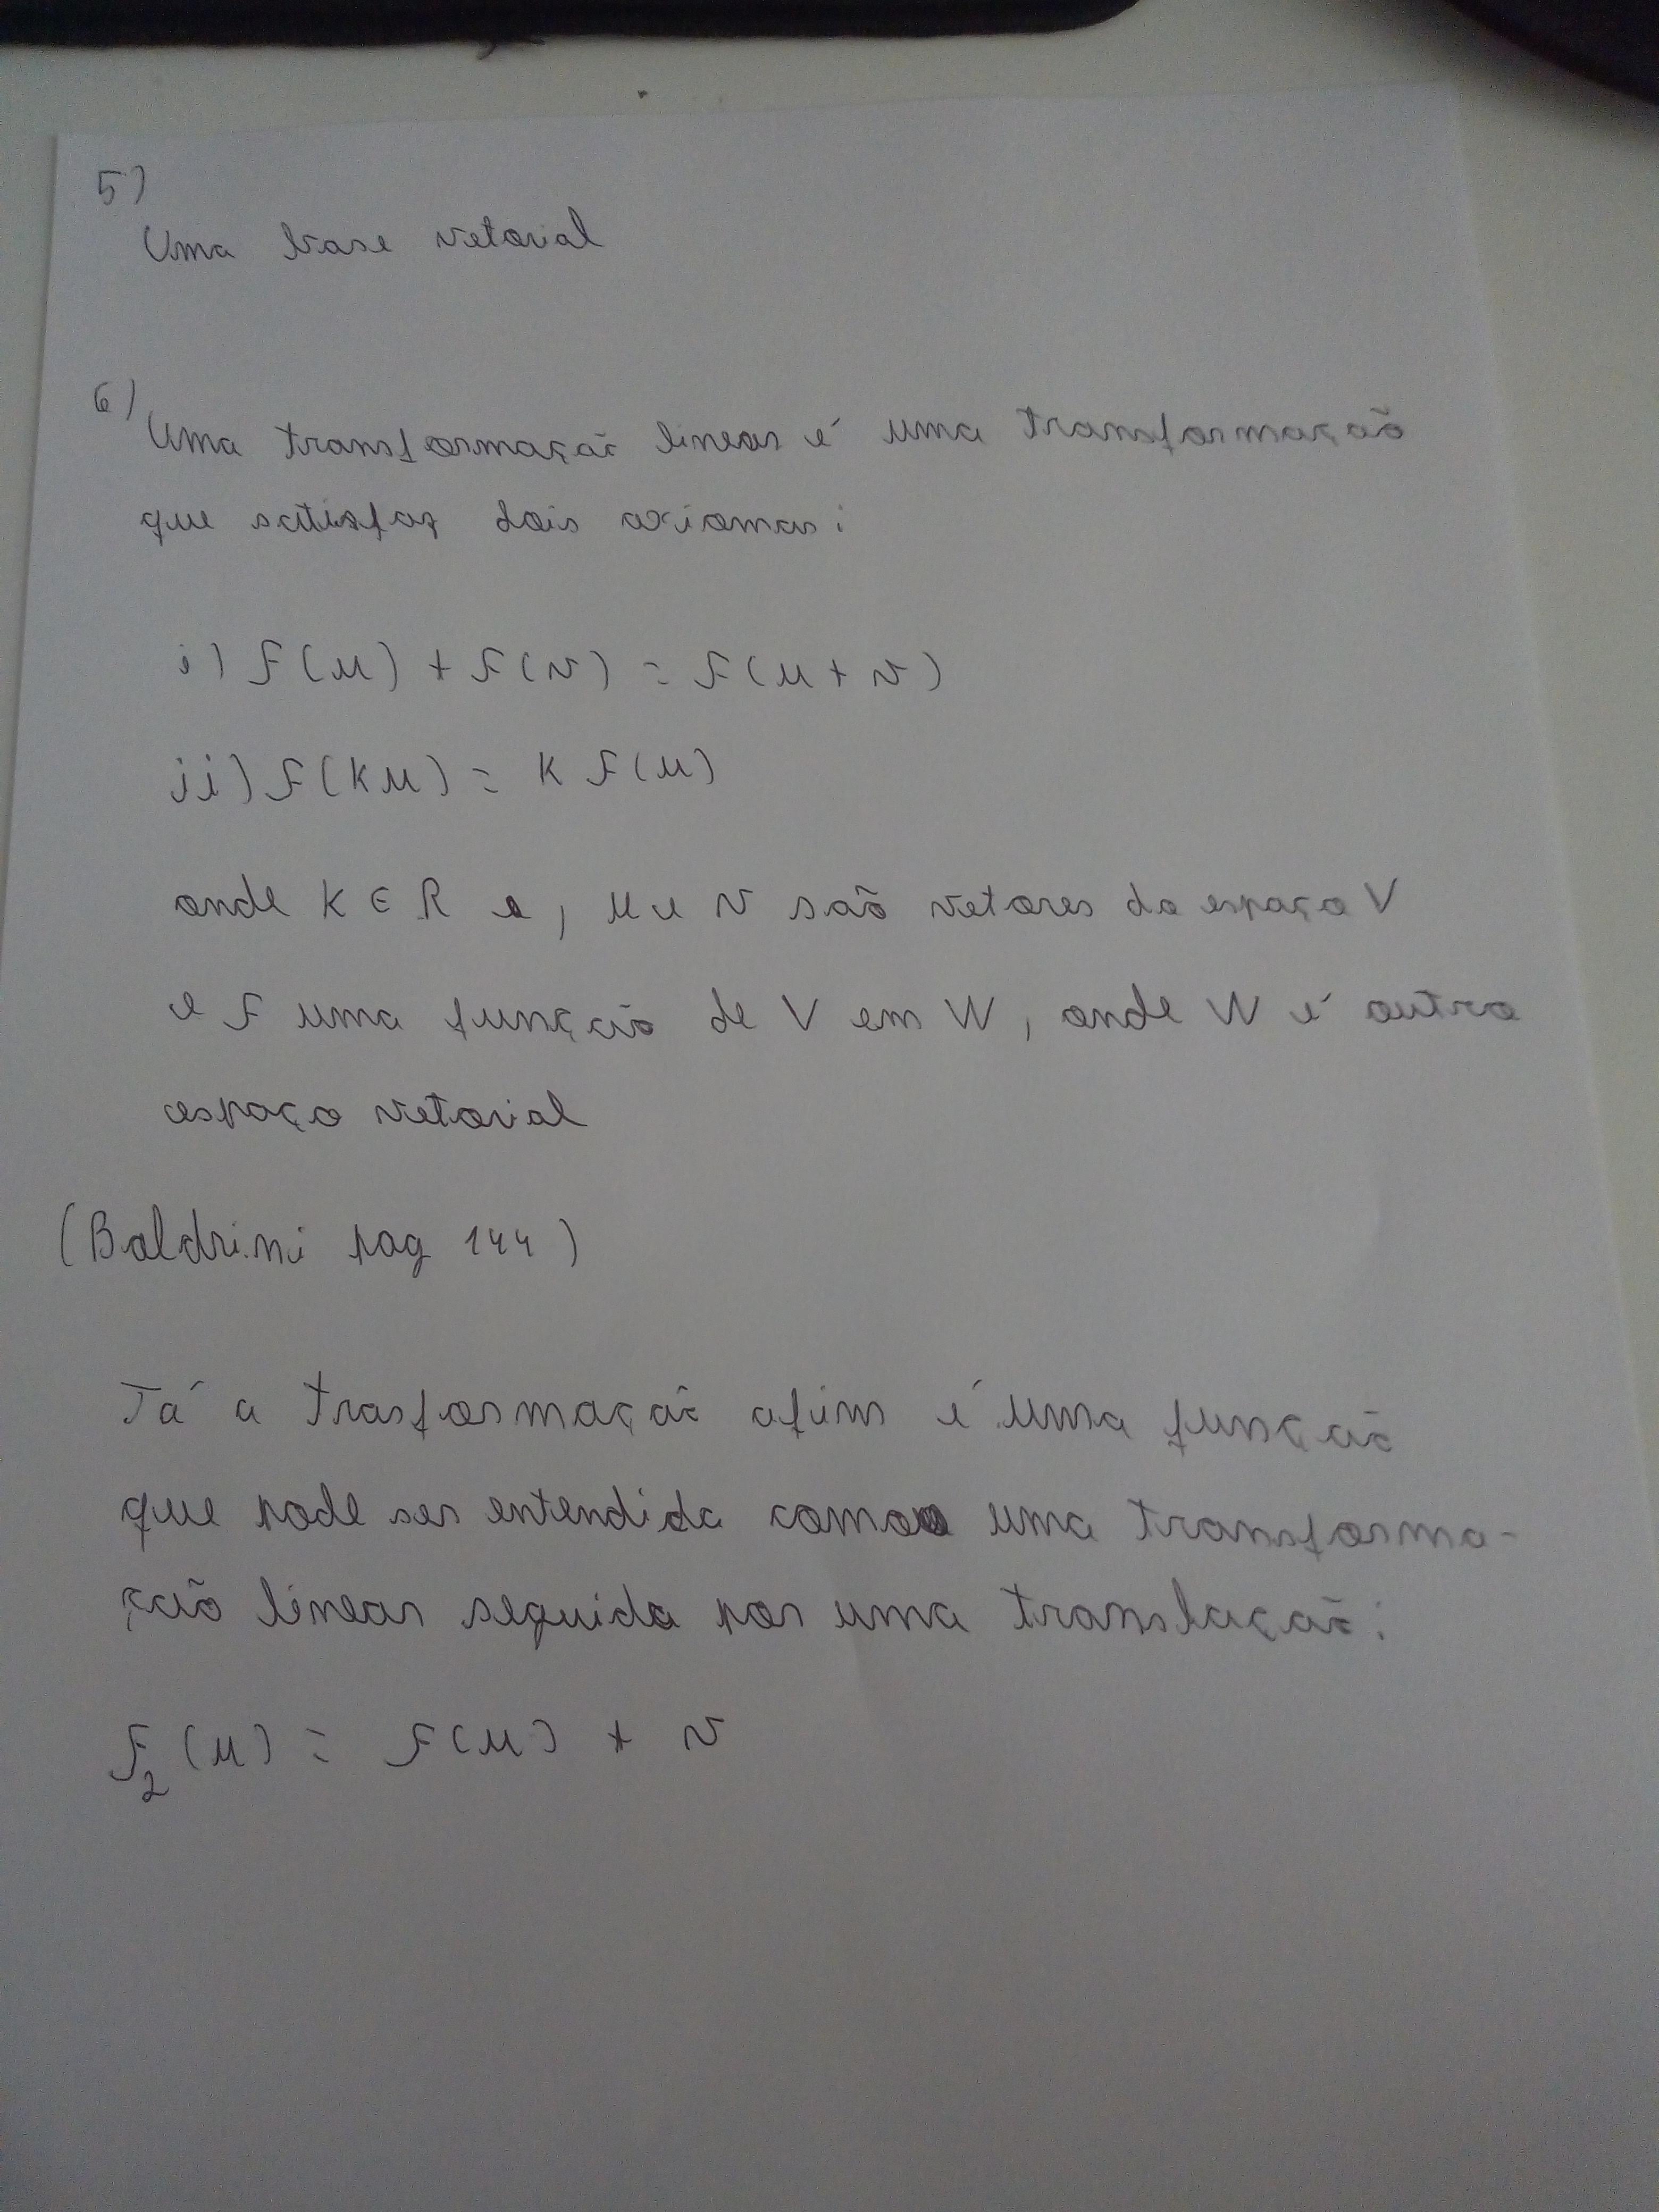 5)
Uma base vetorial
6)
Uma transformação linear é uma transformação
que satisfaz dois axiomas:
i) F(u) + F(v) = F(u + v)
ii) F(Ku) = K F(u)
onde K ∈ R e, u e v são vetores do espaço V
e F uma função de V em W, onde W é outro
espaço vetorial
(Boldrini pag 144)
Já a trasformação afim é uma função
que pode ser entendida como uma transforma-
ção linear seguida por uma translação:
F₂(u) = F(u) + v